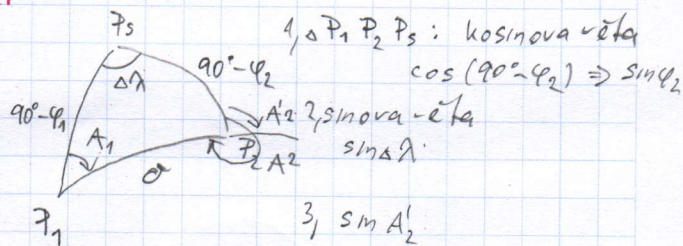 Ps
Δλ
90°-φ₂
90°-φ₁
A₁
A'₂
P₂
A₂
σ
P₁
1, Δ P₁ P₂ Ps : kosinova věta
cos (90°-φ₂) ⇒ sinφ₂
2, sinova věta
sinΔλ
3, sin A'₂